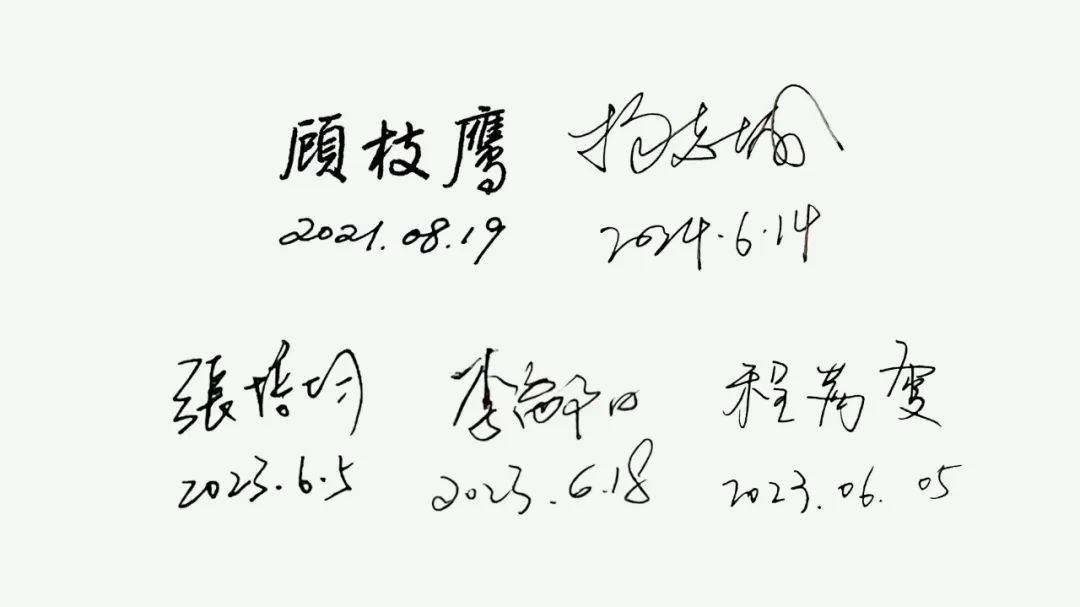 顧枝鹰 杨志城
2021.08.19 2024.6.14
張培均 李 程
2023.6.5 2023.6.18 2023.06.05